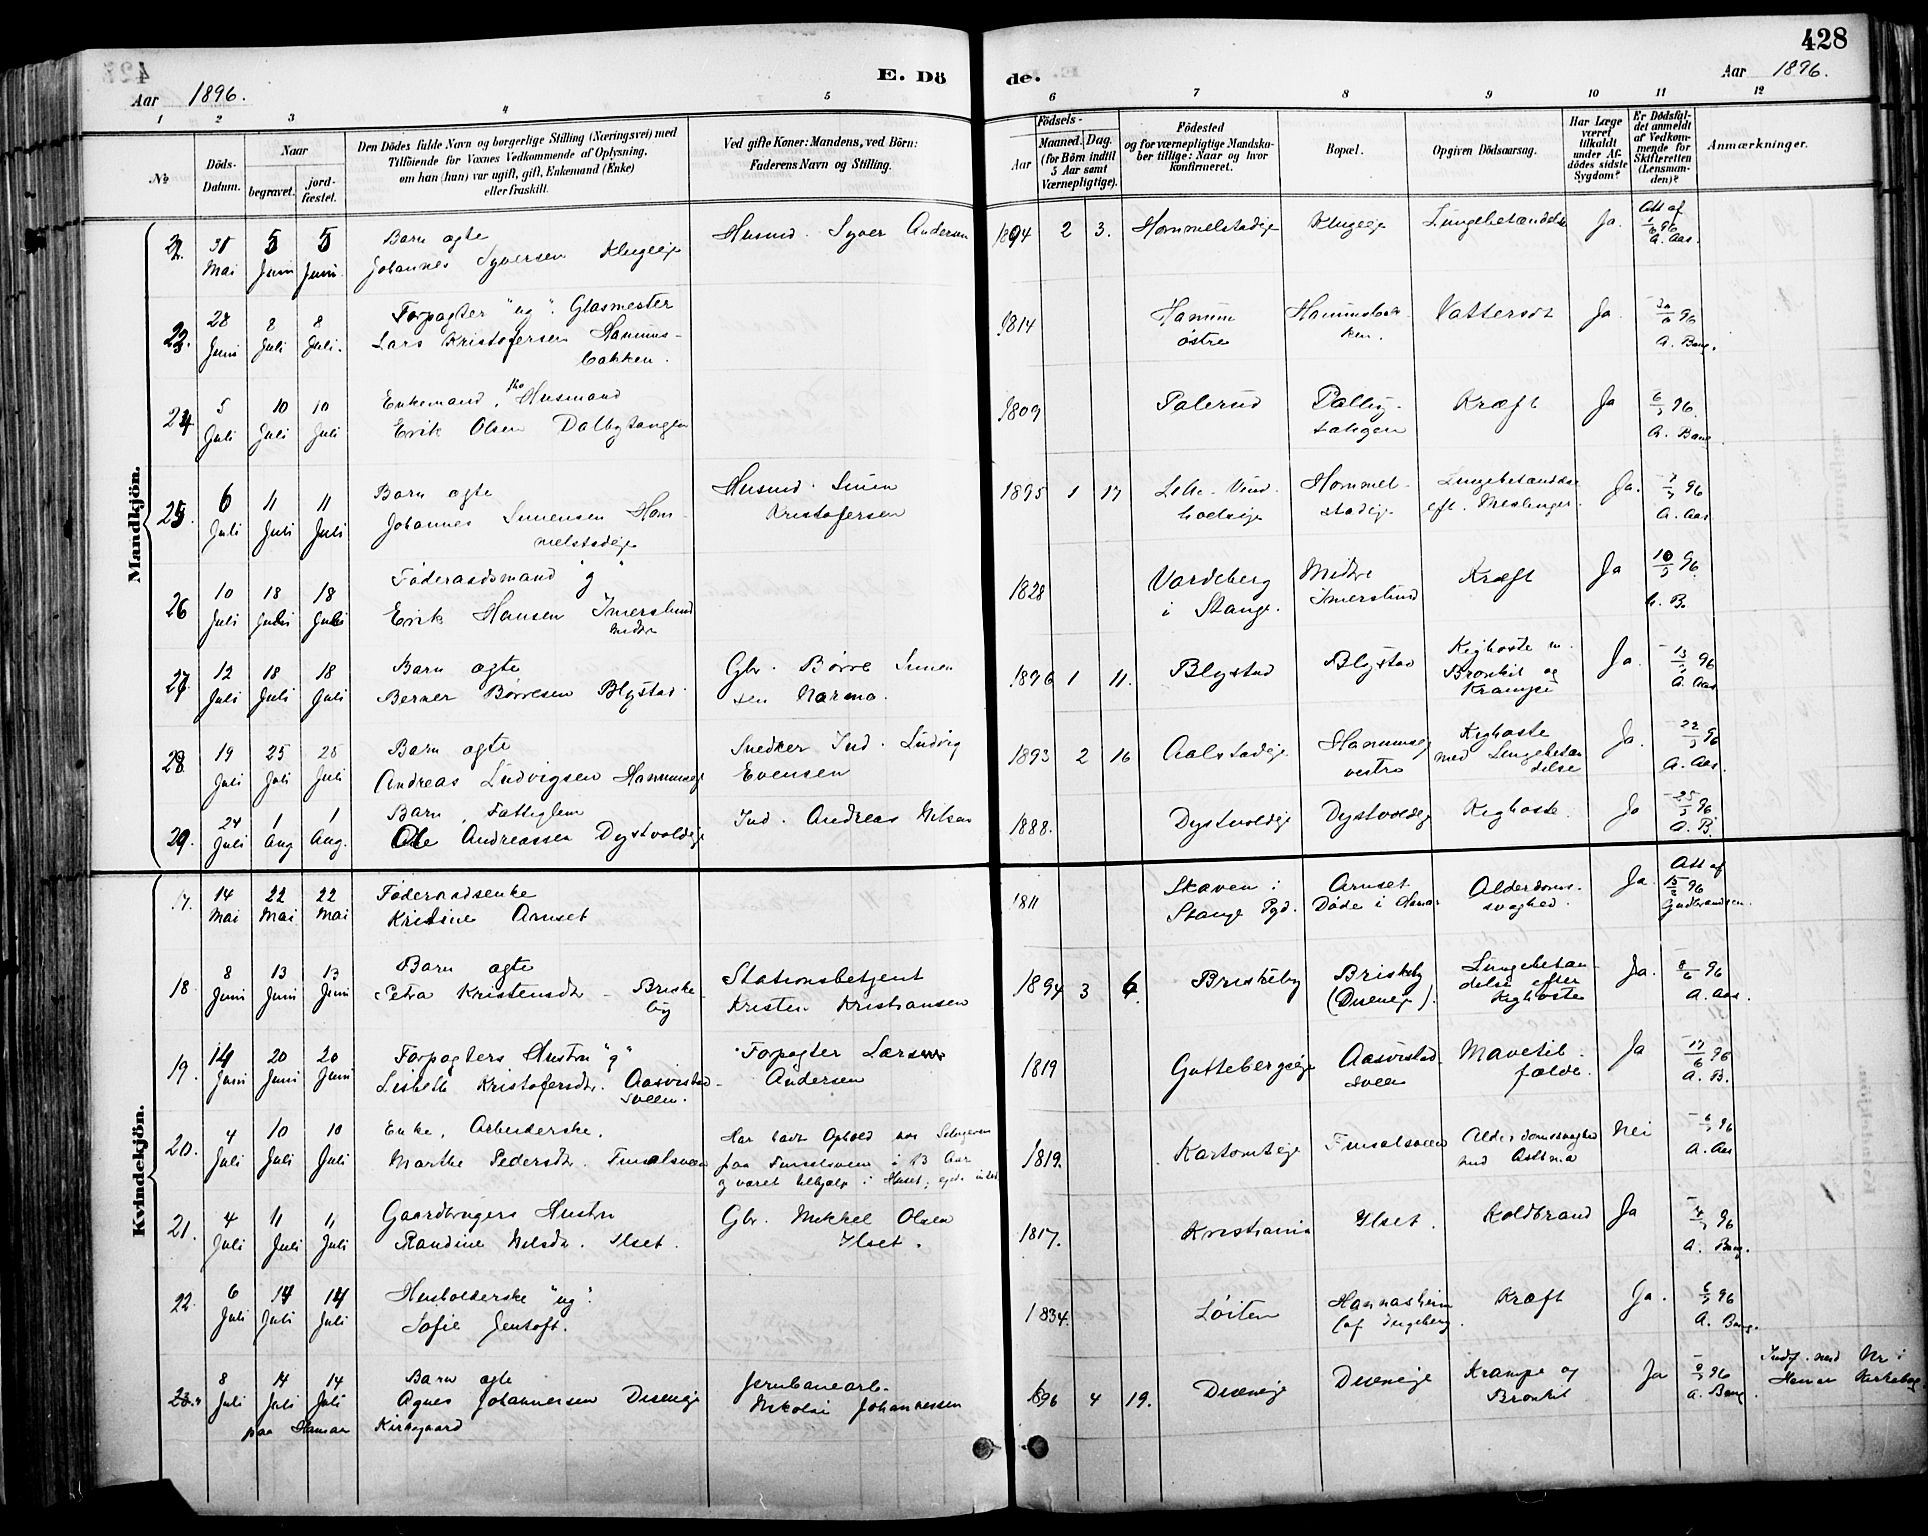 428
E. Döde.
Aar 1896.
Aar 1896.
1 2 3 4 5 6 7 8 9 10 11 12
No
Döds-Datum.
Naar
begravet.
jordfæstet.
Den Dödes fulde Navn og borgerlige Stilling (Næringsvei) med
Tilföiende for Voxnes Vedkommende af Oplysning,
om han (hun) var ugift, gift, Enkemand (Enke)
eller fraskilt.
Ved gifte Koner: Mandens, ved Börn:
Faderens Navn og Stilling.
Födsels-
Aar
Maaned. Dag.
(for Börn indtil
5 Aar samt
Værnepligtige).
Födested
og for værnepligtige Mandskaber tillige: Naar og hvor
konfirmeret.
Bopæl.
Opgiven Dödsaarsag.
Har Læge været tilkaldt under Afdödes sidste Sygdom?
Er Dödsfaldet anmeldt af Vedkommende for Skifteretten (Lensmanden)?
Anmærkninger.
Mandkjön.
22. 31 Mai 5 Juni 5 Juni. Barn ægte
Johannes Syversen Klugeije Husmd. Syver Andersen 1894 2 3. Hommelstadeje Klugeije Lungebetændelse Ja. Att af A. Aas.
23. 28 Juni 8 Juli 8 Juli. Forpagter "ug". Glasmester
Lars Kristofersen Hammesbakken. 1814 Hamum østre Vattersot Ja 96 A. Bang.
24 5 Juli 10 Juli 10 Juli Enkemand, Husmand
Erik Olsen Dalbytangen 1809 Palerud Dalbytangen Kræft Ja 6/7 96. A. Bang
25. 6 Juli 11 Juli 11 Juli Barn ægte
Johannes Simensen Hommelstadeje Husmd. Simen
Kristofersen 1895 1 17 Hommelstadeje Lungebetændelse eft. Meslinger. Ja. 7/7 96 A. Aas
26 10 Juli 18 Juli 18 Juli Føderaadsmand "g"
Erik Hansen Imerslund Midtre 1828 Vardeberg i Stange. Midtre Imerslund Kræft Ja 10/7 96. A. B.
27 12 Juli 18 Juli 18 Juli Barn ægte
Berner Børresen Blystad Gbr. Børre Simensen Narmo. 1896 1 11. Blystad Blystad Kighoste m. Bronkit og Krampe Ja. 13/7 96 A. Aas
28. 19 Juli 25 Juli 25 Juli Barn ægte
Andreas Ludvigsen Hammesej Snedker Ind. Ludvig
Evensen 1893 2 16 Aalstadeje Hammesej vestre Kighoste med Lungebetændelse Ja. 22/7 96 A. Aas.
29. 24 Juli 1 Aug 1 Aug. Barn, Fattiglem
Ole Andreassen Dystvoldeje Ind. Andreas Nilsen 1888. Dystvoldeje Dystvoldeje Kighoste. Ja 25/7 96 A. B.
Kvindekjön.
17. 14 Mai 22 Mai 22 Mai Føderaadsenke
Kristine Arnset 1811 Skaven i Stange Pgd. Arnset Døde i Alderdomssvaghed. Ja. Att af 96 Gudbrandsen.
18. 8 Juni 13 Juni 13 Juni Barn ægte
Petra Kristensdtr - Briskeby Stationsbetjent
Kristen Kristiansen 1894 3 6. Briskeby Briskeby (Diseneje). Lungebetændelse efter Kighoste Ja. 8/6 96 A. Aas.
19. 14 Juni 20 Juni 20 Juni Forpagters Hustru "g"
Lisbeth Kristofersdtr. Aasvistadsveen. Forpagter Lars
Andersen 1819 Guttebergseje Aasvistadsveen Mavetilfælde. Ja 17/6 96 A. B.
20. 4 Juli 10 Juli 10 Juli Enke, Arbeiderske.
Marthe Pedersdtr. Finsalsveen Har havt Ophold hos
paa Finsalsveen i 13 Aar
og været tilhjælp i Huset; eide intet 1819. Kartomteje Finsalsveen Alderdomssvaghed med Astma Nei 6/7 96 A. Aas
21. 4 Juli 11 Juli 11 Juli Gaardbrugers Hustru
Randine Nilsdtr. Ilset. Gbr. Mikkel Olsen
Ilset. 1817. Kristiania Ilset. Koldbrand Ja 7/7 96 A. Bang.
22. 6 Juli 14 Juli 14 Juli Husholderske "ug".
Sofie Jentoft. 1834. Løiten Hannasheim (af Ingeberg. Kræft Ja. 6/7 96 A. Bang.
23. 8 Juli 14 Juli 14 Juli Barn ægte
Agnes Johannessen Diseneje
paa Hamar Kirkegaard Jernbanearb.
Nikolai Johannessen 1896 4 19. Diseneje Diseneje Krampe og Bronkit Ja 9/7 96 A. Bang. Indf. med Nr i
Hamar Kirkebog